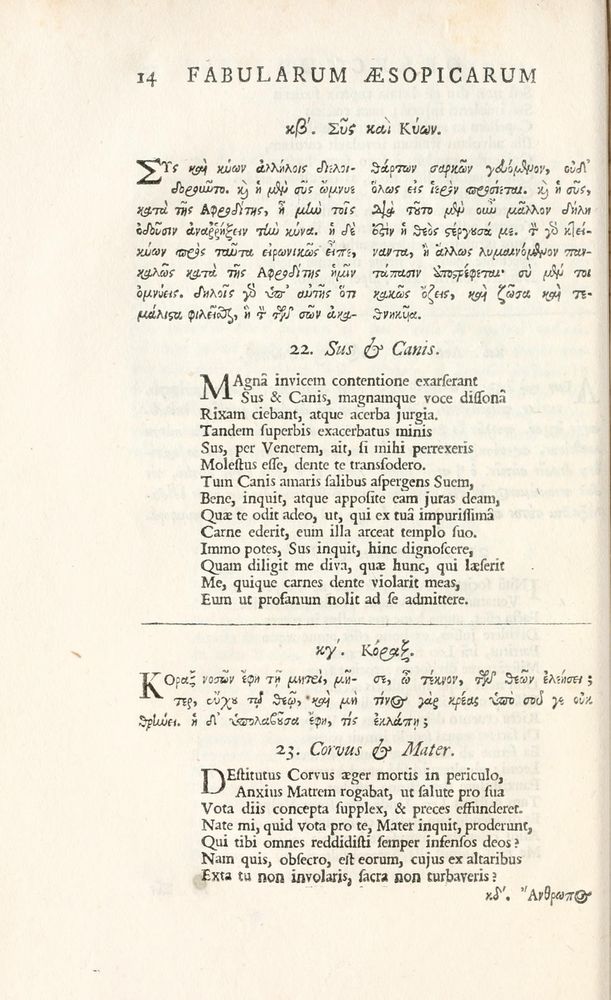 14 FABULARUM ÆSOPICARUM
κβʹ. Σῦς καὶ Κύων.
Σῦς καὶ κύων ἀλλήλοις διελοι-
δοροῦντο. καὶ ἡ μὲν σῦς ὤμνυε
κατὰ τῆς Αφροδίτης, ἦ μὴν τοῖς
ὀδοῦσιν ἀναῤῥήξειν τὴν κύνα. ἡ δὲ
κύων πρὸς ταῦτα εἰρωνικῶς εἶπε,
καλῶς κατὰ τῆς Αφροδίτης ἡμῖν
ὀμνύεις. δηλοῖς γὸ ὑπ' αὐτῆς ὅτι
μάλιςα φιλεῖσαι, ἣ τὸν τῶν σῶν ἀκα-
θάρτων σαρκῶν γευόμενον, οὐδ'
ὅλως εἰς ἱερὸν προσίεται. καὶ ἡ σῦς,
διὰ τοῦτο μὲν οὖν μᾶλλον δήλη
ἐςὶν ἡ θεὸς ςέργουσά με. τὸν γὸ κτεί-
ναντα, ἢ ἄλλως λυμαινόμενον παν-
τάπασιν ἀποςρέφεται· σὺ μέν τοι
κακῶς ὄζεις, καὶ ζῶσα καὶ τε-
θνηκυῖα.
22. Sus & Canis.
MAgnâ invicem contentione exarſerant
Sus & Canis, magnamque voce diſſonâ
Rixam ciebant, atque acerba jurgia.
Tandem ſuperbis exacerbatus minis
Sus, per Venerem, ait, ſi mihi perrexeris
Moleſtus eſſe, dente te transfodero.
Tum Canis amaris ſalibus aſpergens Suem,
Bene, inquit, atque appoſite eam juras deam,
Quæ te odit adeo, ut, qui ex tuâ impuriſſimâ
Carne ederit, eum illa arceat templo ſuo.
Immo potes, Sus inquit, hinc dignoſcere,
Quam diligit me diva, quæ hunc, qui læſerit
Me, quique carnes dente violarit meas,
Eum ut profanum nolit ad ſe admittere.
κγʹ. Κόραξ.
ΚΟραξ νοσῶν ἔφη τῇ μητρὶ, μῆ-
τερ, εὔχου τῷ θεῷ, καὶ μὴ
θρήνει. ἡ δ' ὑπολαβοῦσα ἔφη, τίς
σε, ὦ τέκνον, τῶν θεῶν ἐλεήσει;
τίνος γὰρ κρέας ὑπὸ σοῦ γε οὐκ
ἐκλάπη;
23. Corvus & Mater.
DEſtitutus Corvus æger mortis in periculo,
Anxius Matrem rogabat, ut ſalute pro ſua
Vota diis concepta ſupplex, & preces effunderet.
Nate mi, quid vota pro te, Mater inquit, proderunt,
Qui tibi omnes reddidiſti ſemper infenſos deos?
Nam quis, obſecro, eſt eorum, cujus ex altaribus
Exta tu non involaris, ſacra non turbaveris?
κδʹ. Ἄνθρωπος